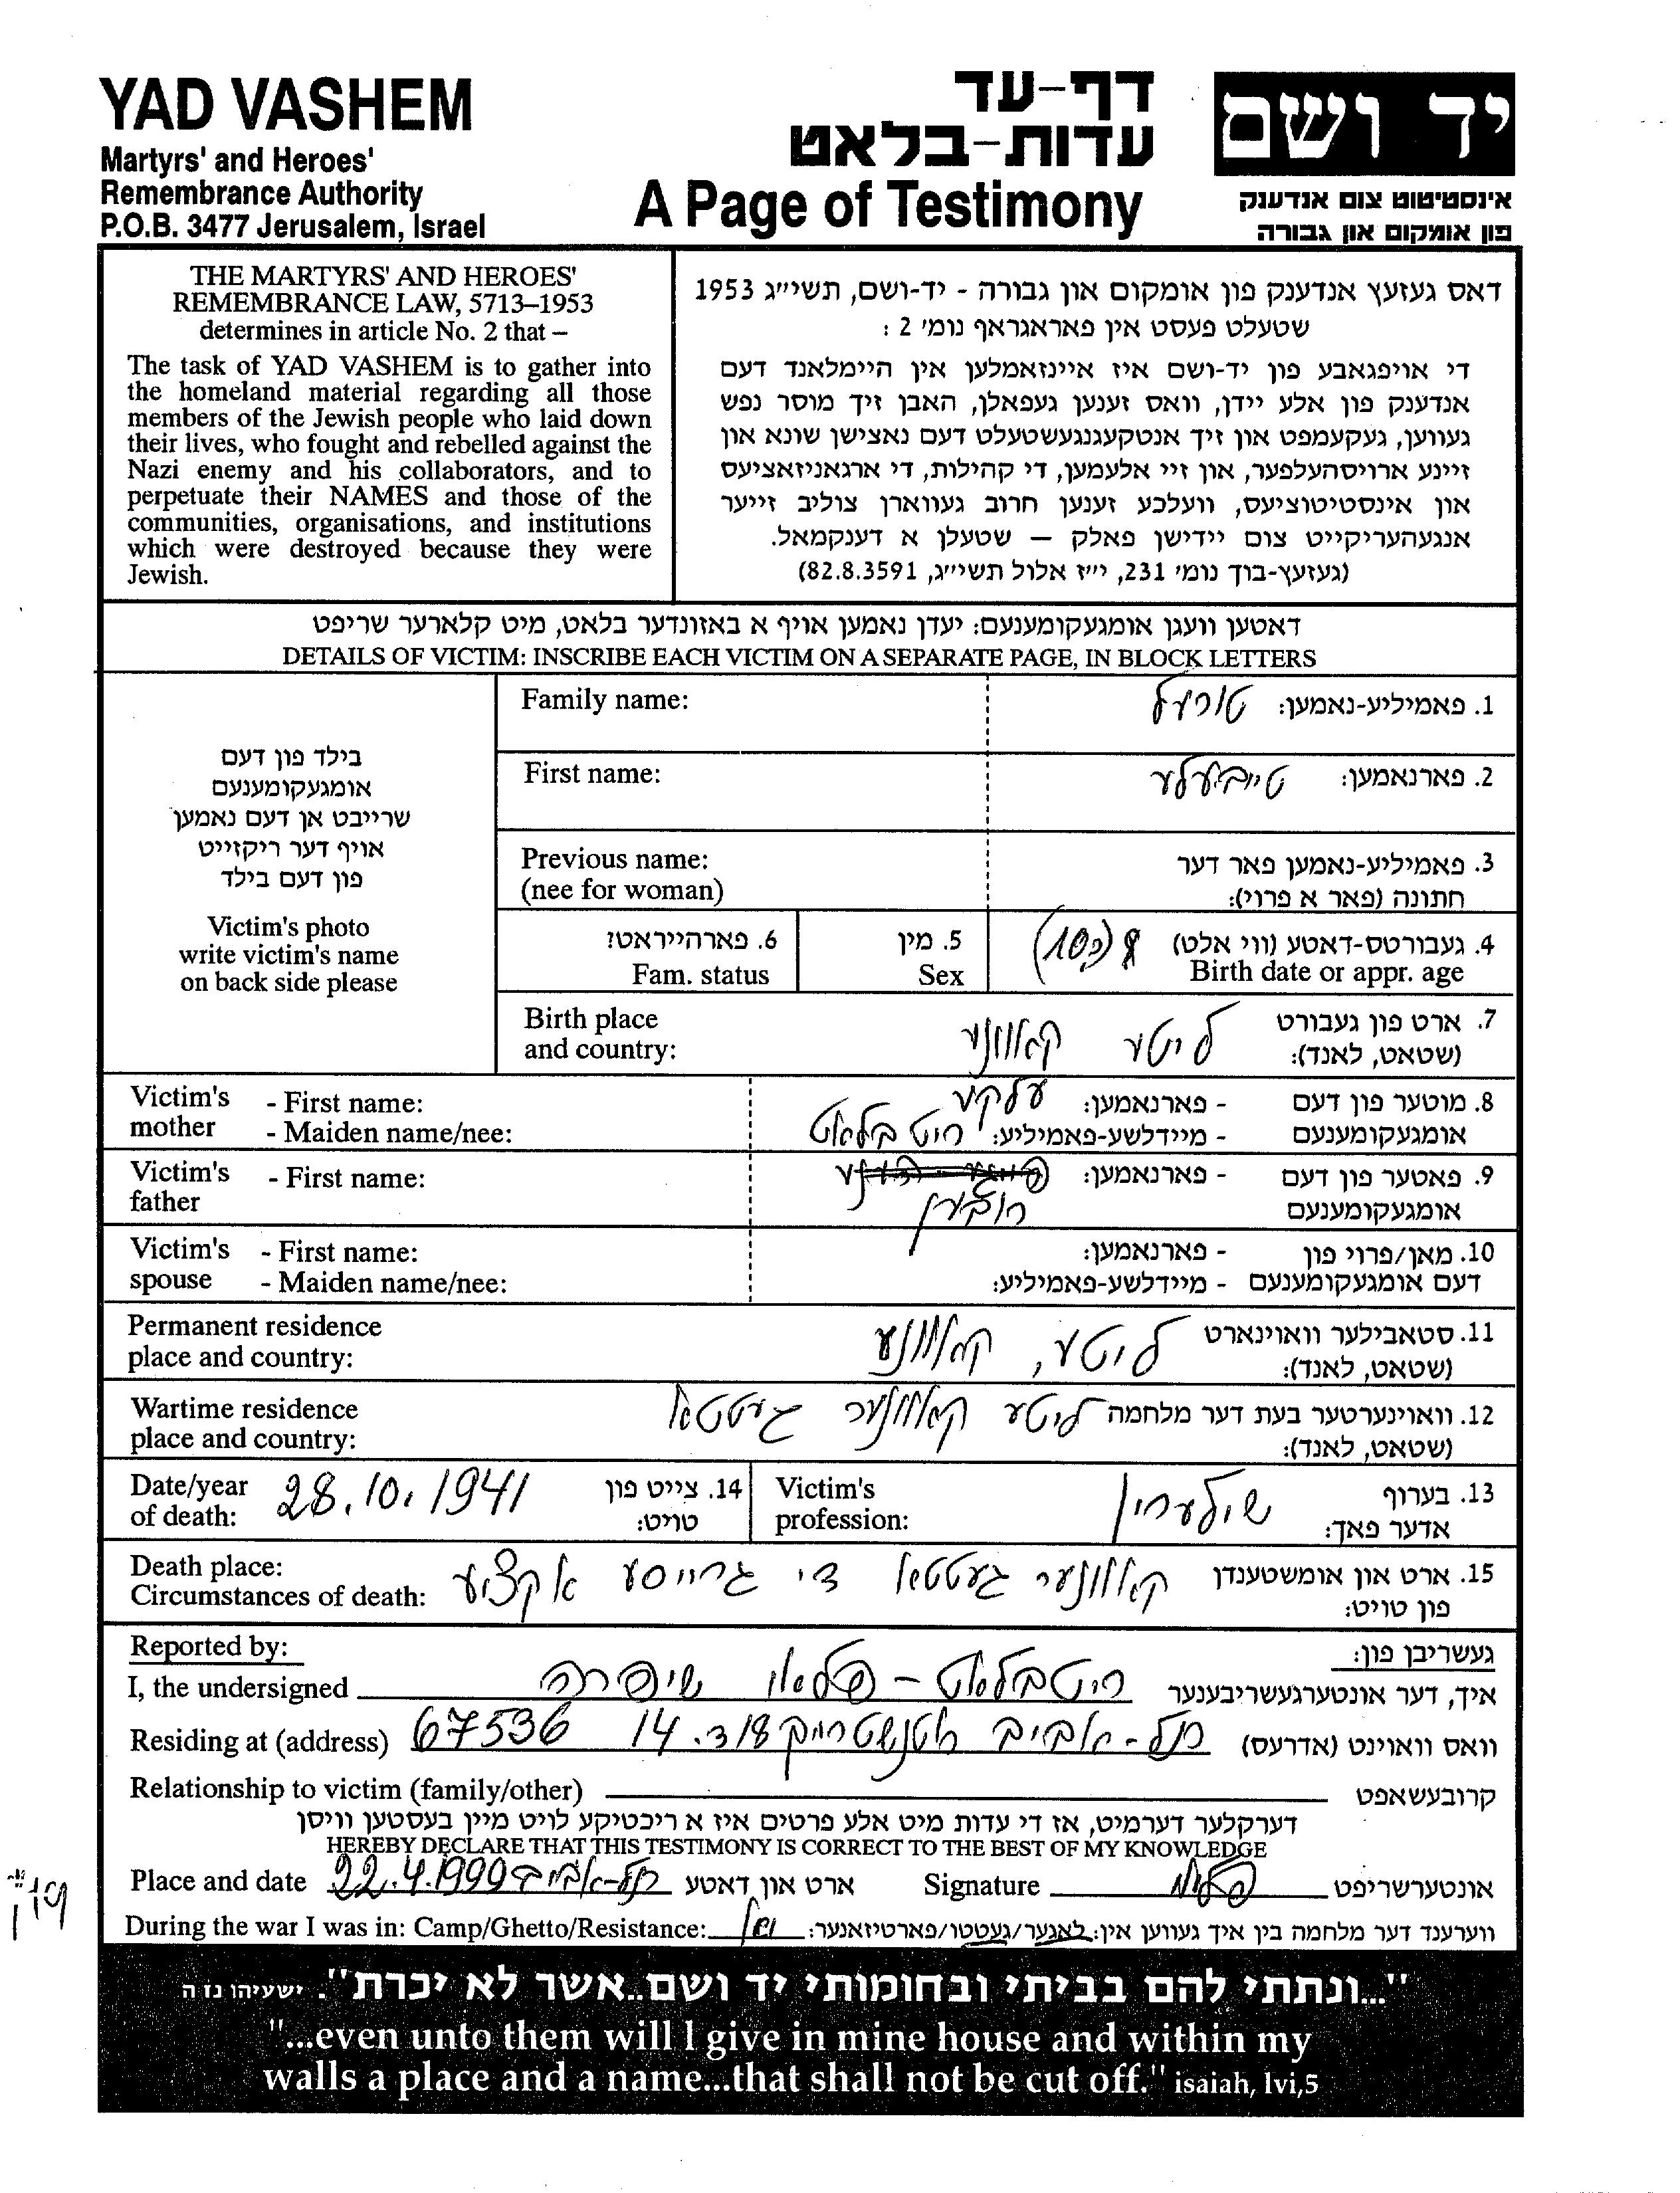 YAD VASHEM
Martyrs' and Heroes'
Remembrance Authority
P.O.B. 3477 Jerusalem, Israel
דף-עד
עדות-בלאט
A Page of Testimony
יד ושם
אינסטיטוט צום אנדענק
פון אומקום און גבורה
THE MARTYRS' AND HEROES'
REMEMBRANCE LAW, 5713–1953
determines in article No. 2 that –
The task of YAD VASHEM is to gather into
the homeland material regarding all those
members of the Jewish people who laid down
their lives, who fought and rebelled against the
Nazi enemy and his collaborators, and to
perpetuate their NAMES and those of the
communities, organisations, and institutions
which were destroyed because they were
Jewish.
דאס געזעץ אנדענק פון אומקום און גבורה - יד-ושם, תשי״ג 1953
שטעלט פעסט אין פאראגראף נומ׳ 2 :
די אויפגאבע פון יד-ושם איז איינזאמלען אין היימלאנד דעם
אנדענק פון אלע יידן, וואס זענען געפאלן, האבן זיך מוסר נפש
געווען, געקעמפט און זיך אנטקעגנגעשטעלט דעם נאצישן שונא און
זיינע ארויסהעלפער, און זיי אלעמען, די קהילות, די ארגאניזאציעס
און אינסטיטוציעס, וועלכע זענען חרוב געווארן צוליב זייער
אנגעהעריקייט צום יידישן פאלק — שטעלן א דענקמאל.
(געזעץ-בוך נומ׳ 231, י״ז אלול תשי״ג, 82.8.3591)
דאטען וועגן אומגעקומענעם: יעדן נאמען אויף א באזונדער בלאט, מיט קלארער שריפט
DETAILS OF VICTIM: INSCRIBE EACH VICTIM ON A SEPARATE PAGE, IN BLOCK LETTERS
בילד פון דעם
אומגעקומענעם
שרייבט אן דעם נאמען
אויף דער ריקזייט
פון דעם בילד
Victim's photo
write victim's name
on back side please
Family name: 1. פאמיליע-נאמען:
First name: 2. פארנאמען: טייבעלע
Previous name: 3. פאמיליע-נאמען פאר דער
(nee for woman) חתונה (פאר א פרוי):
6. פארהייראט? 5. מין 4. געבורטס-דאטע (ווי אלט) 8
Fam. status Sex Birth date or appr. age
Birth place 7. ארט פון געבורט
and country: (שטאט, לאנד): ליטע קאוונע
Victim's - First name: 8. מוטער פון דעם - פארנאמען: עלקע
mother - Maiden name/nee: אומגעקומענעם - מיידלשע-פאמיליע: ריטבלאט
Victim's - First name: 9. פאטער פון דעם - פארנאמען:
father אומגעקומענעם ראובען
Victim's - First name: 10. מאן/פרוי פון - פארנאמען:
spouse - Maiden name/nee: דעם אומגעקומענעם - מיידלשע-פאמיליע:
Permanent residence 11. סטאבילער וואוינארט
place and country: (שטאט, לאנד): ליטע, קאוונע
Wartime residence 12. וואוינערטער בעת דער מלחמה ליטע קאוונער געטטא
place and country: (שטאט, לאנד):
Date/year 28.10.1941 14. צייט פון Victim's 13. בערוף שולערין
of death: טויט: profession: אדער פאך:
Death place: 15. ארט און אומשטענדן קאוונער געטטא די גרויסע אקציע
Circumstances of death: פון טויט:
Reported by: געשריבן פון:
I, the undersigned איך, דער אונטערגעשריבענער ריטבלאט - פלאו שיפרה
Residing at (address) וואס וואוינט (אדרעס) תל-אביב 18 ד. 14 67536
Relationship to victim (family/other) קרובעשאפט
דערקלער דערמיט, אז די עדות מיט אלע פרטים איז א ריכטיקע לויט מיין בעסטען וויסן
HEREBY DECLARE THAT THIS TESTIMONY IS CORRECT TO THE BEST OF MY KNOWLEDGE
Place and date 22.4.1999 תל-אביב ארט און דאטע Signature אונטערשריפט
During the war I was in: Camp/Ghetto/Resistance: ווערענד דער מלחמה בין איך געווען אין: לאגער/געטטו/פארטיזאנער:
"...ונתתי להם בביתי ובחומותי יד ושם..אשר לא יכרת". ישעיהו נו ה
"...even unto them will I give in mine house and within my
walls a place and a name...that shall not be cut off." isaiah, lvi,5